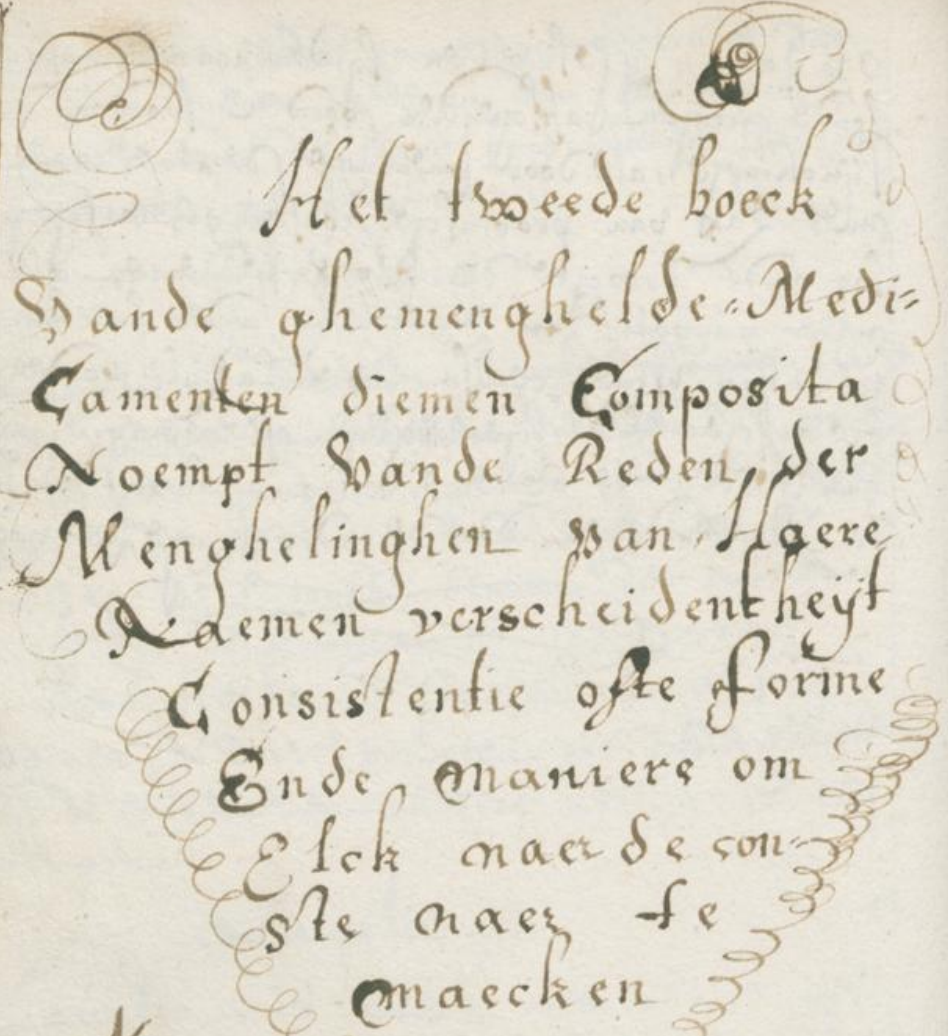 Het tweede boeck
Vande ghemenghelde Medi=
Camenten diemen Composita
Noempt Vande Reden der
Menghelinghen van Haere
Naemen verscheidentheijt
Consistentie ofte forme
Ende maniere om
Elck naer de con-
ste naer te
maecken